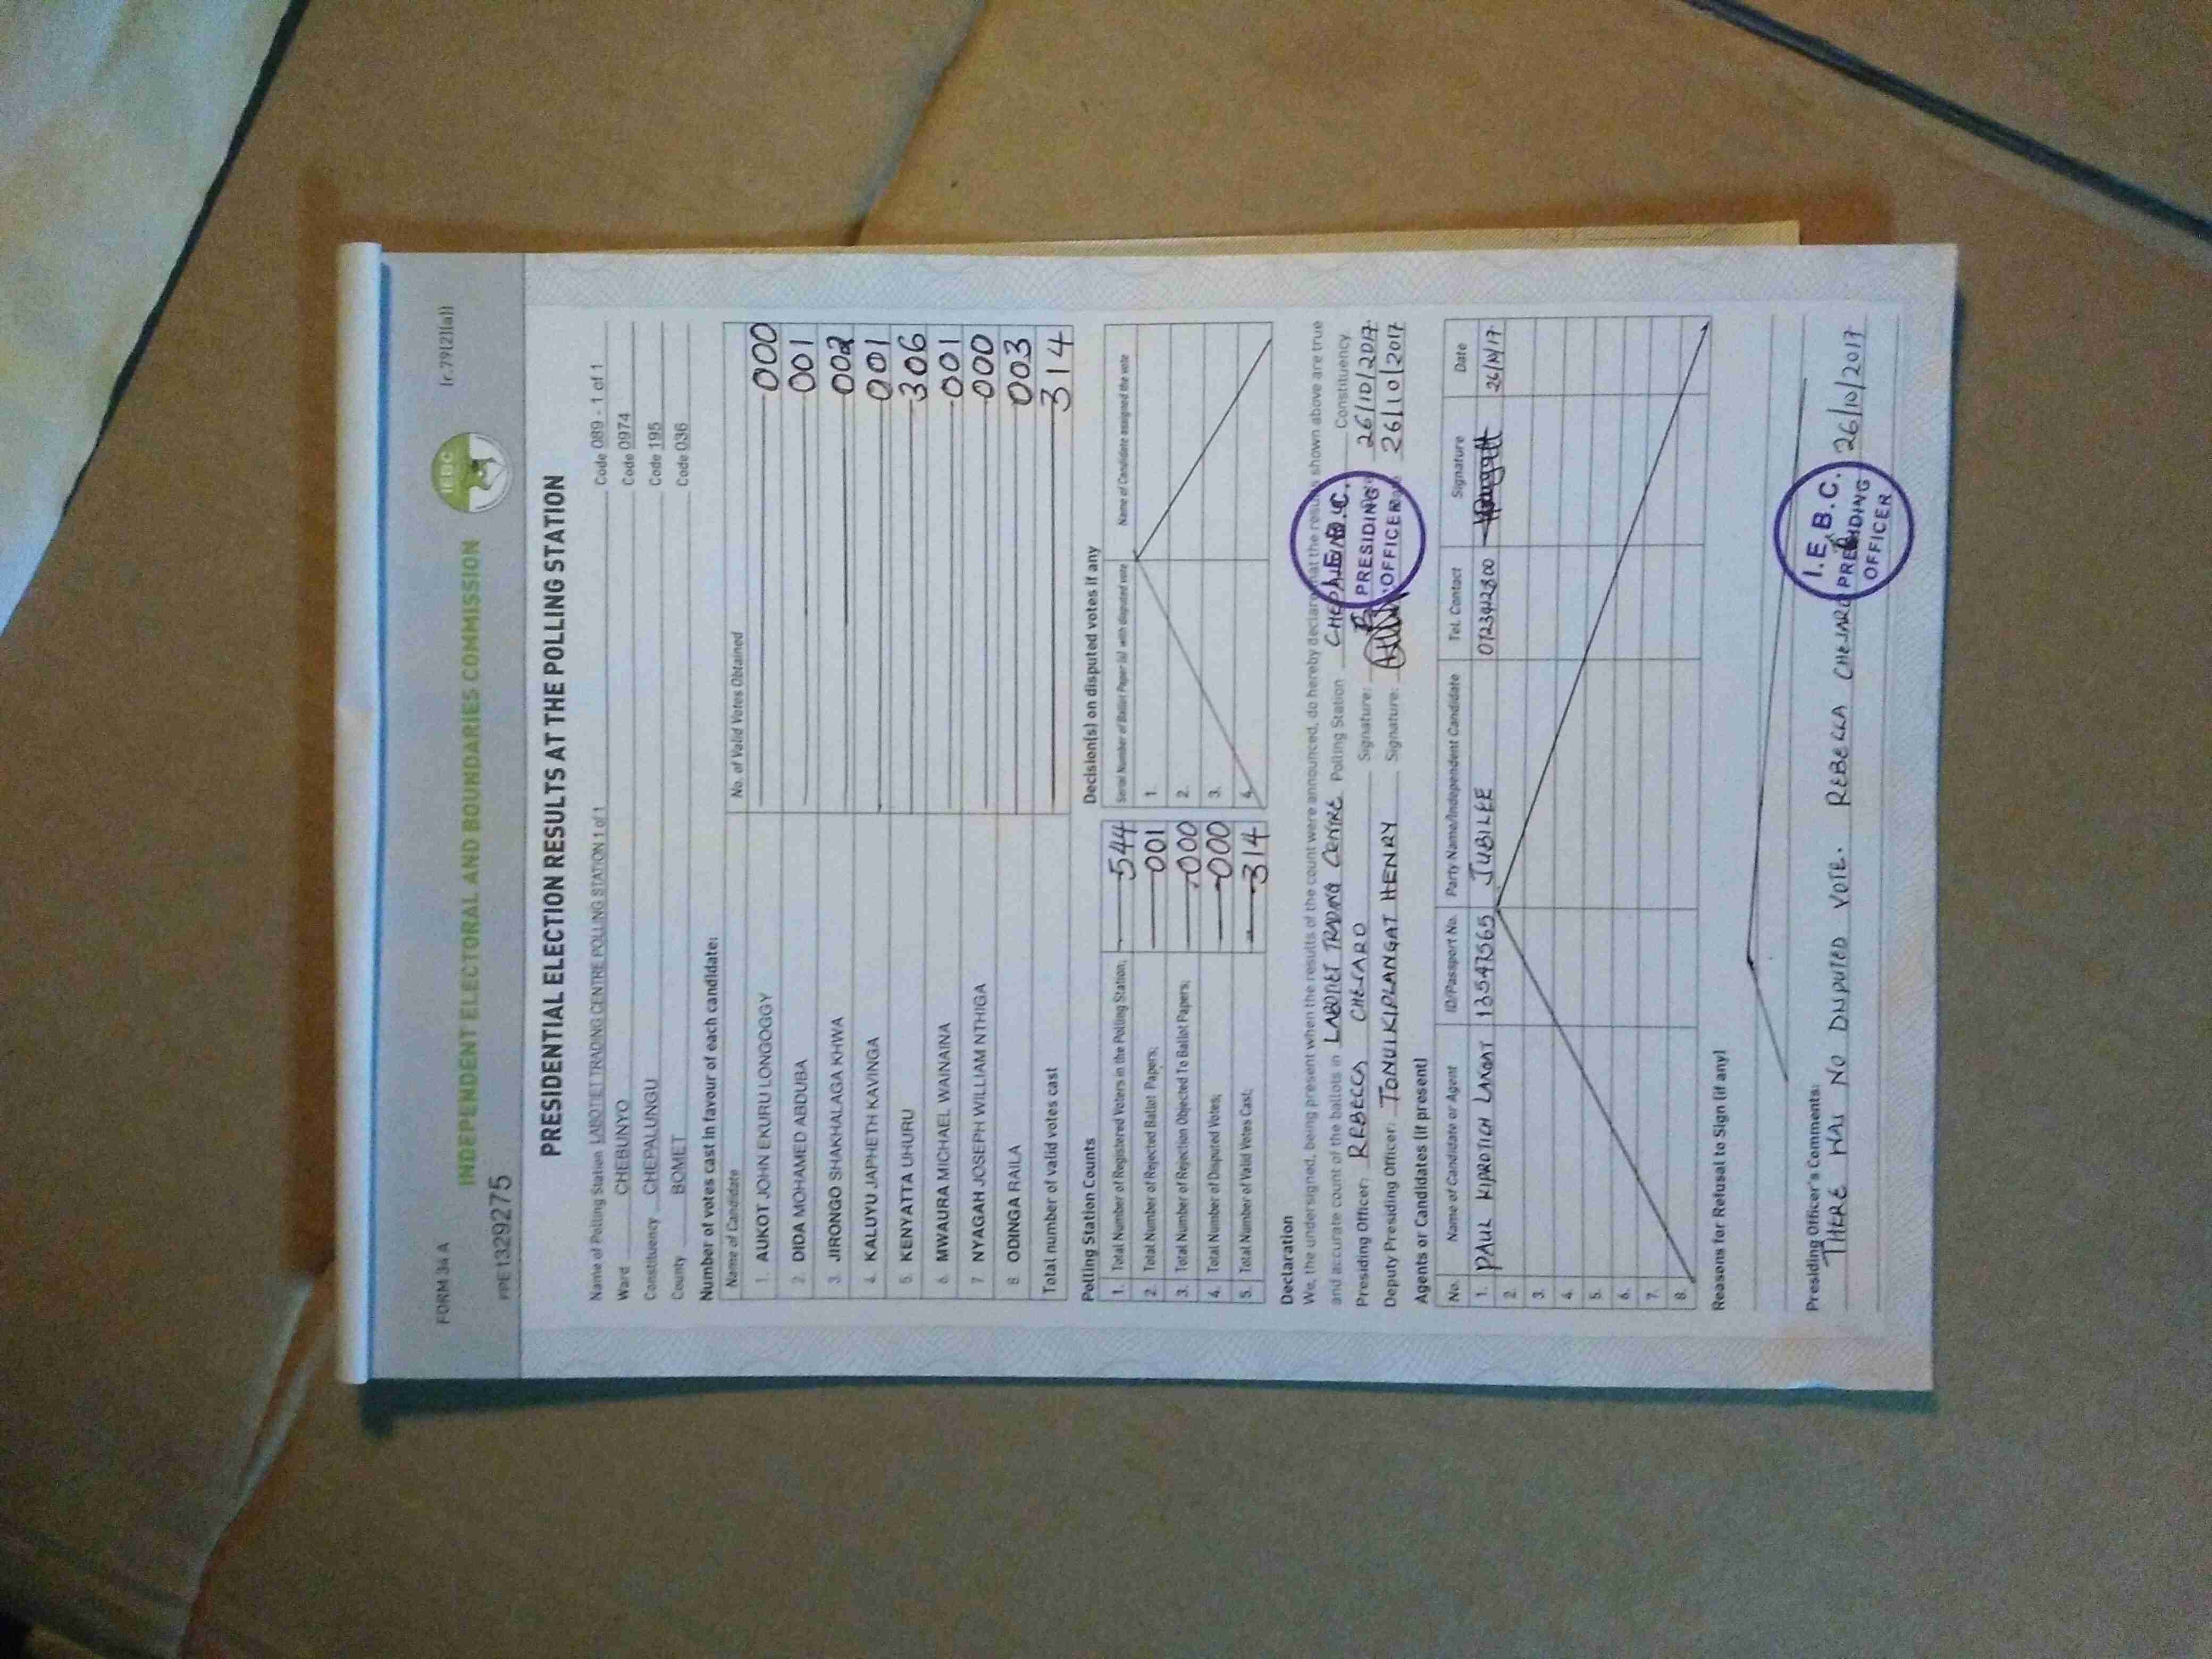 FORM 34 A
(r.79(2)(a))
IEBC
INDEPENDENT ELECTORAL AND BOUNDARIES COMMISSION
PPE1329275
PRESIDENTIAL ELECTION RESULTS AT THE POLLING STATION
Name of Polling Station LABOTIET TRADING CENTRE POLLING STATION 1 of 1 Code 089 - 1 of 1
Ward CHEBUNYO Code 0974
Constituency CHEPALUNGU Code 195
County BOMET Code 036
Number of votes cast in favour of each candidate:
Name of Candidate No. of Valid Votes Obtained
1. AUKOT JOHN EKURU LONGOGGY 000
2. DIDA MOHAMED ABDUBA 001
3. JIRONGO SHAKHALAGA KHWA 002
4. KALUYU JAPHETH KAVINGA 001
5. KENYATTA UHURU 306
6. MWAURA MICHAEL WAINAINA 001
7 NYAGAH JOSEPH WILLIAM NTHIGA 000
8. ODINGA RAILA 003
Total number of valid votes cast 314
Polling Station Counts
1. Total Number of Registered Voters in the Polling Station; 544
2. Total Number of Rejected Ballot Papers; 001
3. Total Number of Rejection Objected To Ballot Papers; 000
4. Total Number of Disputed Votes; 000
5. Total Number of Valid Votes Cast; 314
Decision(s) on disputed votes if any
Serial Number of Ballot Paper (s) with disputed vote Name of Candidate assigned the vote
1.
2.
3.
4.
Declaration
We, the undersigned, being present when the results of the count were announced, do hereby declare that the results shown above are true
and accurate count of the ballots in LABOTIET TRADING CENTRE Polling Station Constituency
Presiding Officer: REBECCA CHEJARO Signature: 26/10/2017
Deputy Presiding Officer: TONUI KIPLANGAT HENRY Signature: 26/10/2017
I.E.B.C.
PRESIDING
OFFICER
Agents or Candidates (if present)
No. Name of Candidate or Agent ID/Passport No. Party Name/Independent Candidate Tel. Contact Signature Date
1. PAUL KIPROTICH LANGAT 13547565 JUBILEE
2.
3.
4.
5.
6.
7.
8.
Reasons for Refusal to Sign (if any)
Presiding Officer's Comments:
THERE WAS NO DISPUTED VOTE. REBECCA CHEJARO 26/10/2017
I.E.B.C.
PRESIDING
OFFICER